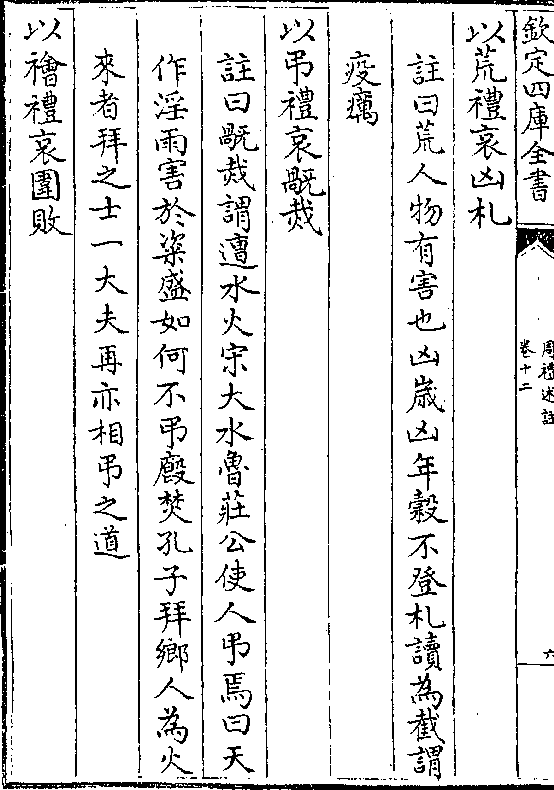 欽定四庫全書
周禮述註
卷十二
六
以荒禮哀凶札
註曰荒人物有害也凶歲凶年穀不登札讀為截謂
疫癘
以弔禮哀禍烖
註曰禍烖謂遭水火宋大水魯莊公使人弔焉曰天
作淫雨害於粢盛如何不弔廏焚孔子拜鄉人為火
來者拜之士一大夫再亦相弔之道
以禬禮哀圍敗